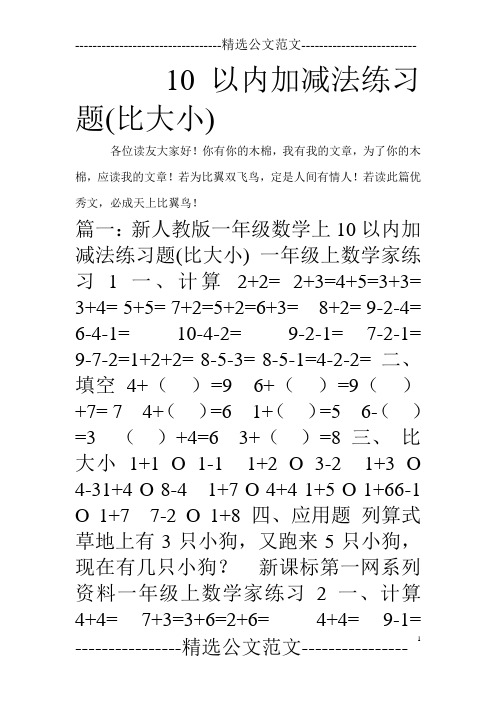 ----------------------------------精选公文范文---------------------------
10 以内加减法练习
题(比大小)
各位读友大家好！你有你的木棉，我有我的文章，为了你的木
棉，应读我的文章！若为比翼双飞鸟，定是人间有情人！若读此篇优
秀文，必成天上比翼鸟！
篇一：新人教版一年级数学上10以内加
减法练习题(比大小) 一年级上数学家练
习 1 一、计算 2+2= 2+3=4+5=3+3=
3+4= 5+5= 7+2=5+2=6+3= 8+2= 9-2-4=
6-4-1= 10-4-2= 9-2-1= 7-2-1=
9-7-2=1+2+2= 8-5-3= 8-5-1=4-2-2= 二、
填空 4+（ ）=9 6+（ ）=9（ ）
+7= 7 4+（ ）=6 1+（ ）=5 6-（ ）
=3 （ ）+4=6 3+（ ）=8 三、 比
大小 1+1 O 1-1 1+2 O 3-2 1+3 O
4-31+4 O 8-4 1+7 O 4+4 1+5 O 1+66-1
O 1+7 7-2 O 1+8 四、应用题 列算式
草地上有 3 只小狗，又跑来 5 只小狗，
现在有几只小狗？ 新课标第一网系列
资料一年级上数学家练习 2 一、计算
4+4= 7+3=3+6=2+6= 4+4= 9-1=
----------------精选公文范文---------------- 1